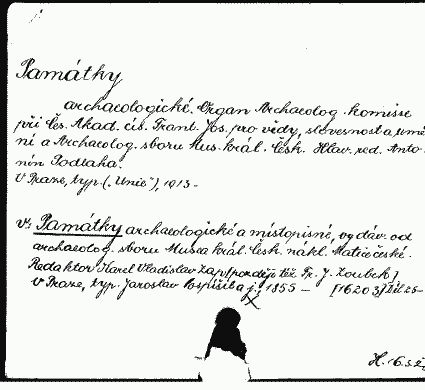 Památky
archaeologické. Organ Archaeolog. komisse
při Čes. Akad. cís. Frant. Jos. pro vědy, slovesnost a umě-
ní a Archaeolog. sboru Mus. král. Česk. Hlav. red. Anto-
nín Podlaha.
V Praze, typ. („Unie"), 1913 -
v. Památky archaeologické a místopisné, vydáv. od
archaeolog. sboru Musea král. Česk. nákl. Matice české.
Redaktor Karel Vladislav Zap [později též Fr. J. Zoubek]
v Praze, typ. Jaroslav Pospíšil a j., 1855 - [16203] Díl 25-